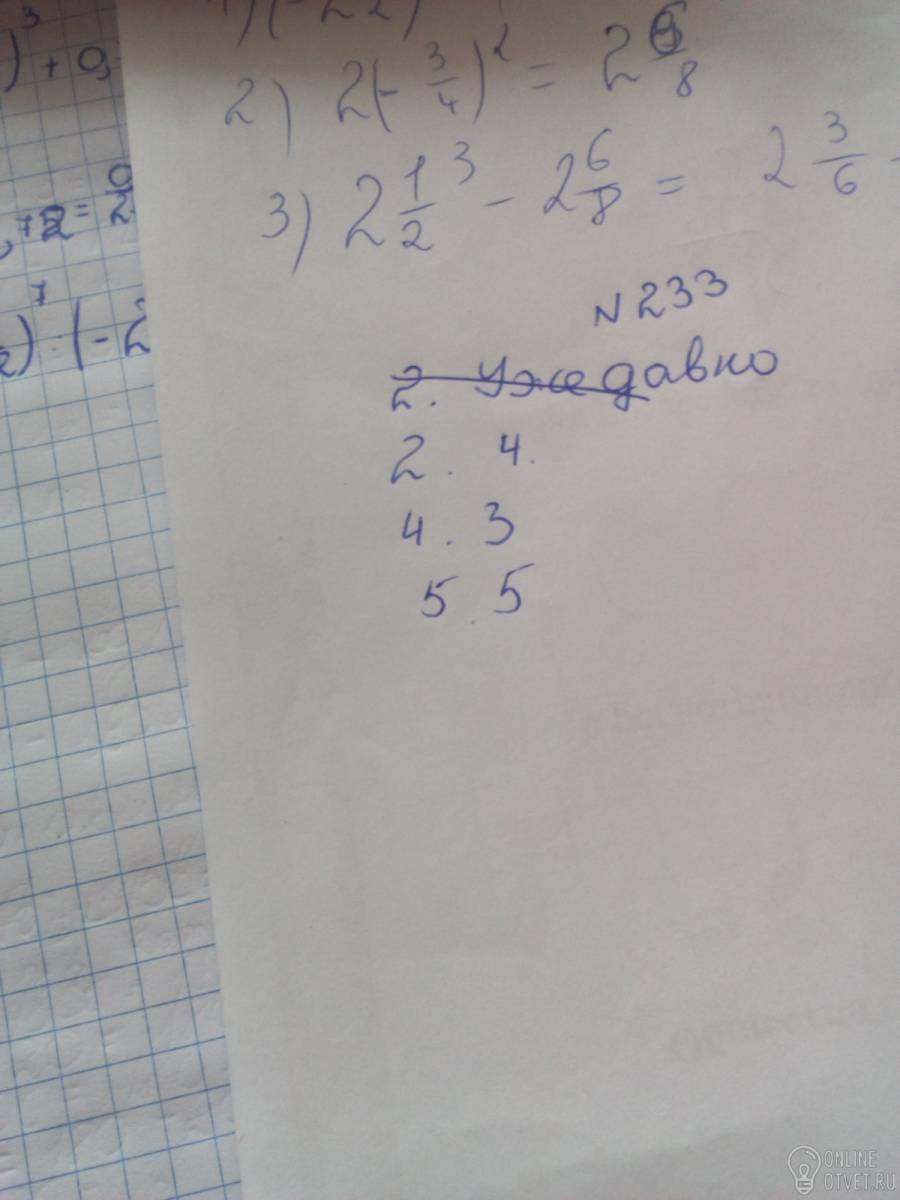 )³ + 0,
+2 = 0/2
)⁷ : (-2
1) (-22)
2) 2(-3/4)² = 2 6/8
3) 2 1/2³ - 2 6/8 = 2 3/6 -
N 233
2. Уже давно
2. 4.
4. 3
5. 5
ONLINE
OTVET.RU